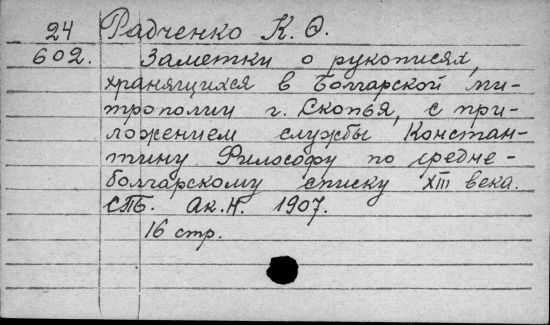 24 Радченко К. Ѳ.
602. Заметки о рукописях,
хранящихся в Болгарской ми-
трополии г. Скопья, с при-
ложением службы Констан-
тину Философу по средне-
болгарскому списку XIII века.
СПБ. Ак.Н. 1907.
16 стр.